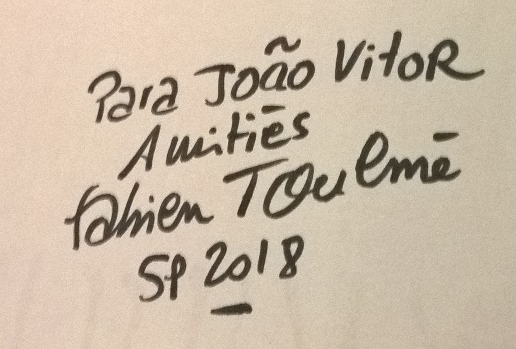 Para João Vitor
Amitiés
Fabien Toulmé
SP 2018